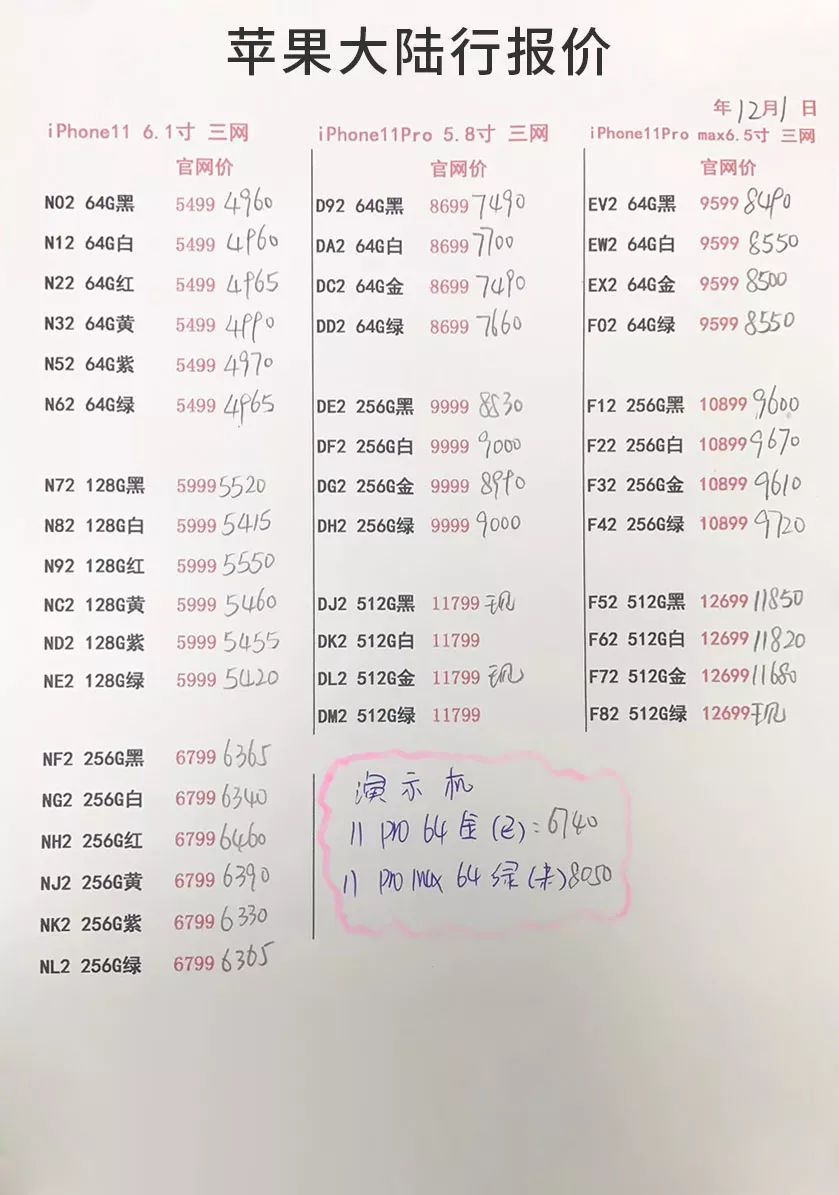 苹果大陆行报价
年12月1日
iPhone11 6.1寸 三网
官网价
N02 64G黑 5499 4960
N12 64G白 5499 4960
N22 64G红 5499 4965
N32 64G黄 5499 4990
N52 64G紫 5499 4970
N62 64G绿 5499 4965
N72 128G黑 5999 5520
N82 128G白 5999 5415
N92 128G红 5999 5550
NC2 128G黄 5999 5460
ND2 128G紫 5999 5455
NE2 128G绿 5999 5420
NF2 256G黑 6799 6365
NG2 256G白 6799 6340
NH2 256G红 6799 6460
NJ2 256G黄 6799 6390
NK2 256G紫 6799 6330
NL2 256G绿 6799 6365
iPhone11Pro 5.8寸 三网
官网价
D92 64G黑 8699 7490
DA2 64G白 8699 7700
DC2 64G金 8699 7490
DD2 64G绿 8699 7660
DE2 256G黑 9999 8830
DF2 256G白 9999 9000
DG2 256G金 9999 8990
DH2 256G绿 9999 9000
DJ2 512G黑 11799 现
DK2 512G白 11799
DL2 512G金 11799 现
DM2 512G绿 11799
演示机
11 pro 64 金(已):6740
11 pro max 64 绿(未)8050
iPhone11Pro max6.5寸 三网
官网价
EV2 64G黑 9599 8490
EW2 64G白 9599 8550
EX2 64G金 9599 8500
F02 64G绿 9599 8550
F12 256G黑 10899 9600
F22 256G白 10899 9670
F32 256G金 10899 9610
F42 256G绿 10899 9720
F52 512G黑 12699 11850
F62 512G白 12699 11820
F72 512G金 12699 11680
F82 512G绿 12699 现